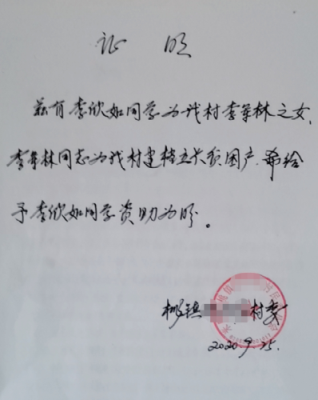 证 明
兹有李欣如同学为我村李军林之女,
李军林同志为我村建档立卡贫困户.希给
予李欣如同学资助为盼。
村委
2020.9.25.